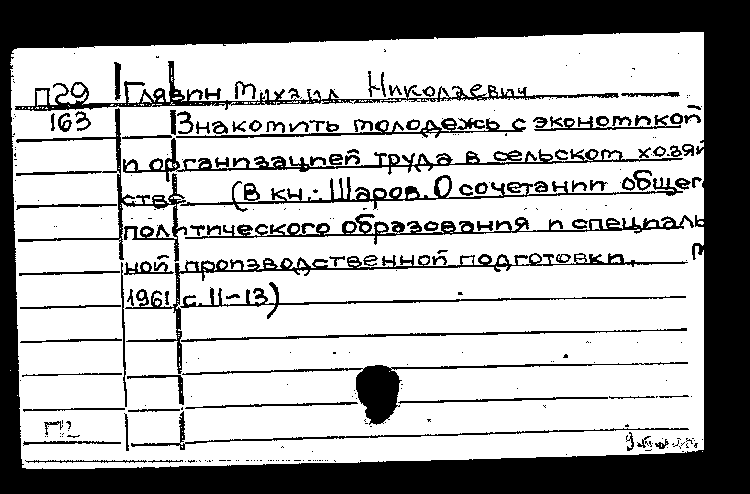 П29 Главин, Михаил Николаевич
163 Знакомить молодежь с экономикой
и организацией труда в сельском хозяй
стве. (В кн.: Шаров. О сочетании общего
политического образования и специаль
ной производственной подготовки. М
1961, с. 11-13)